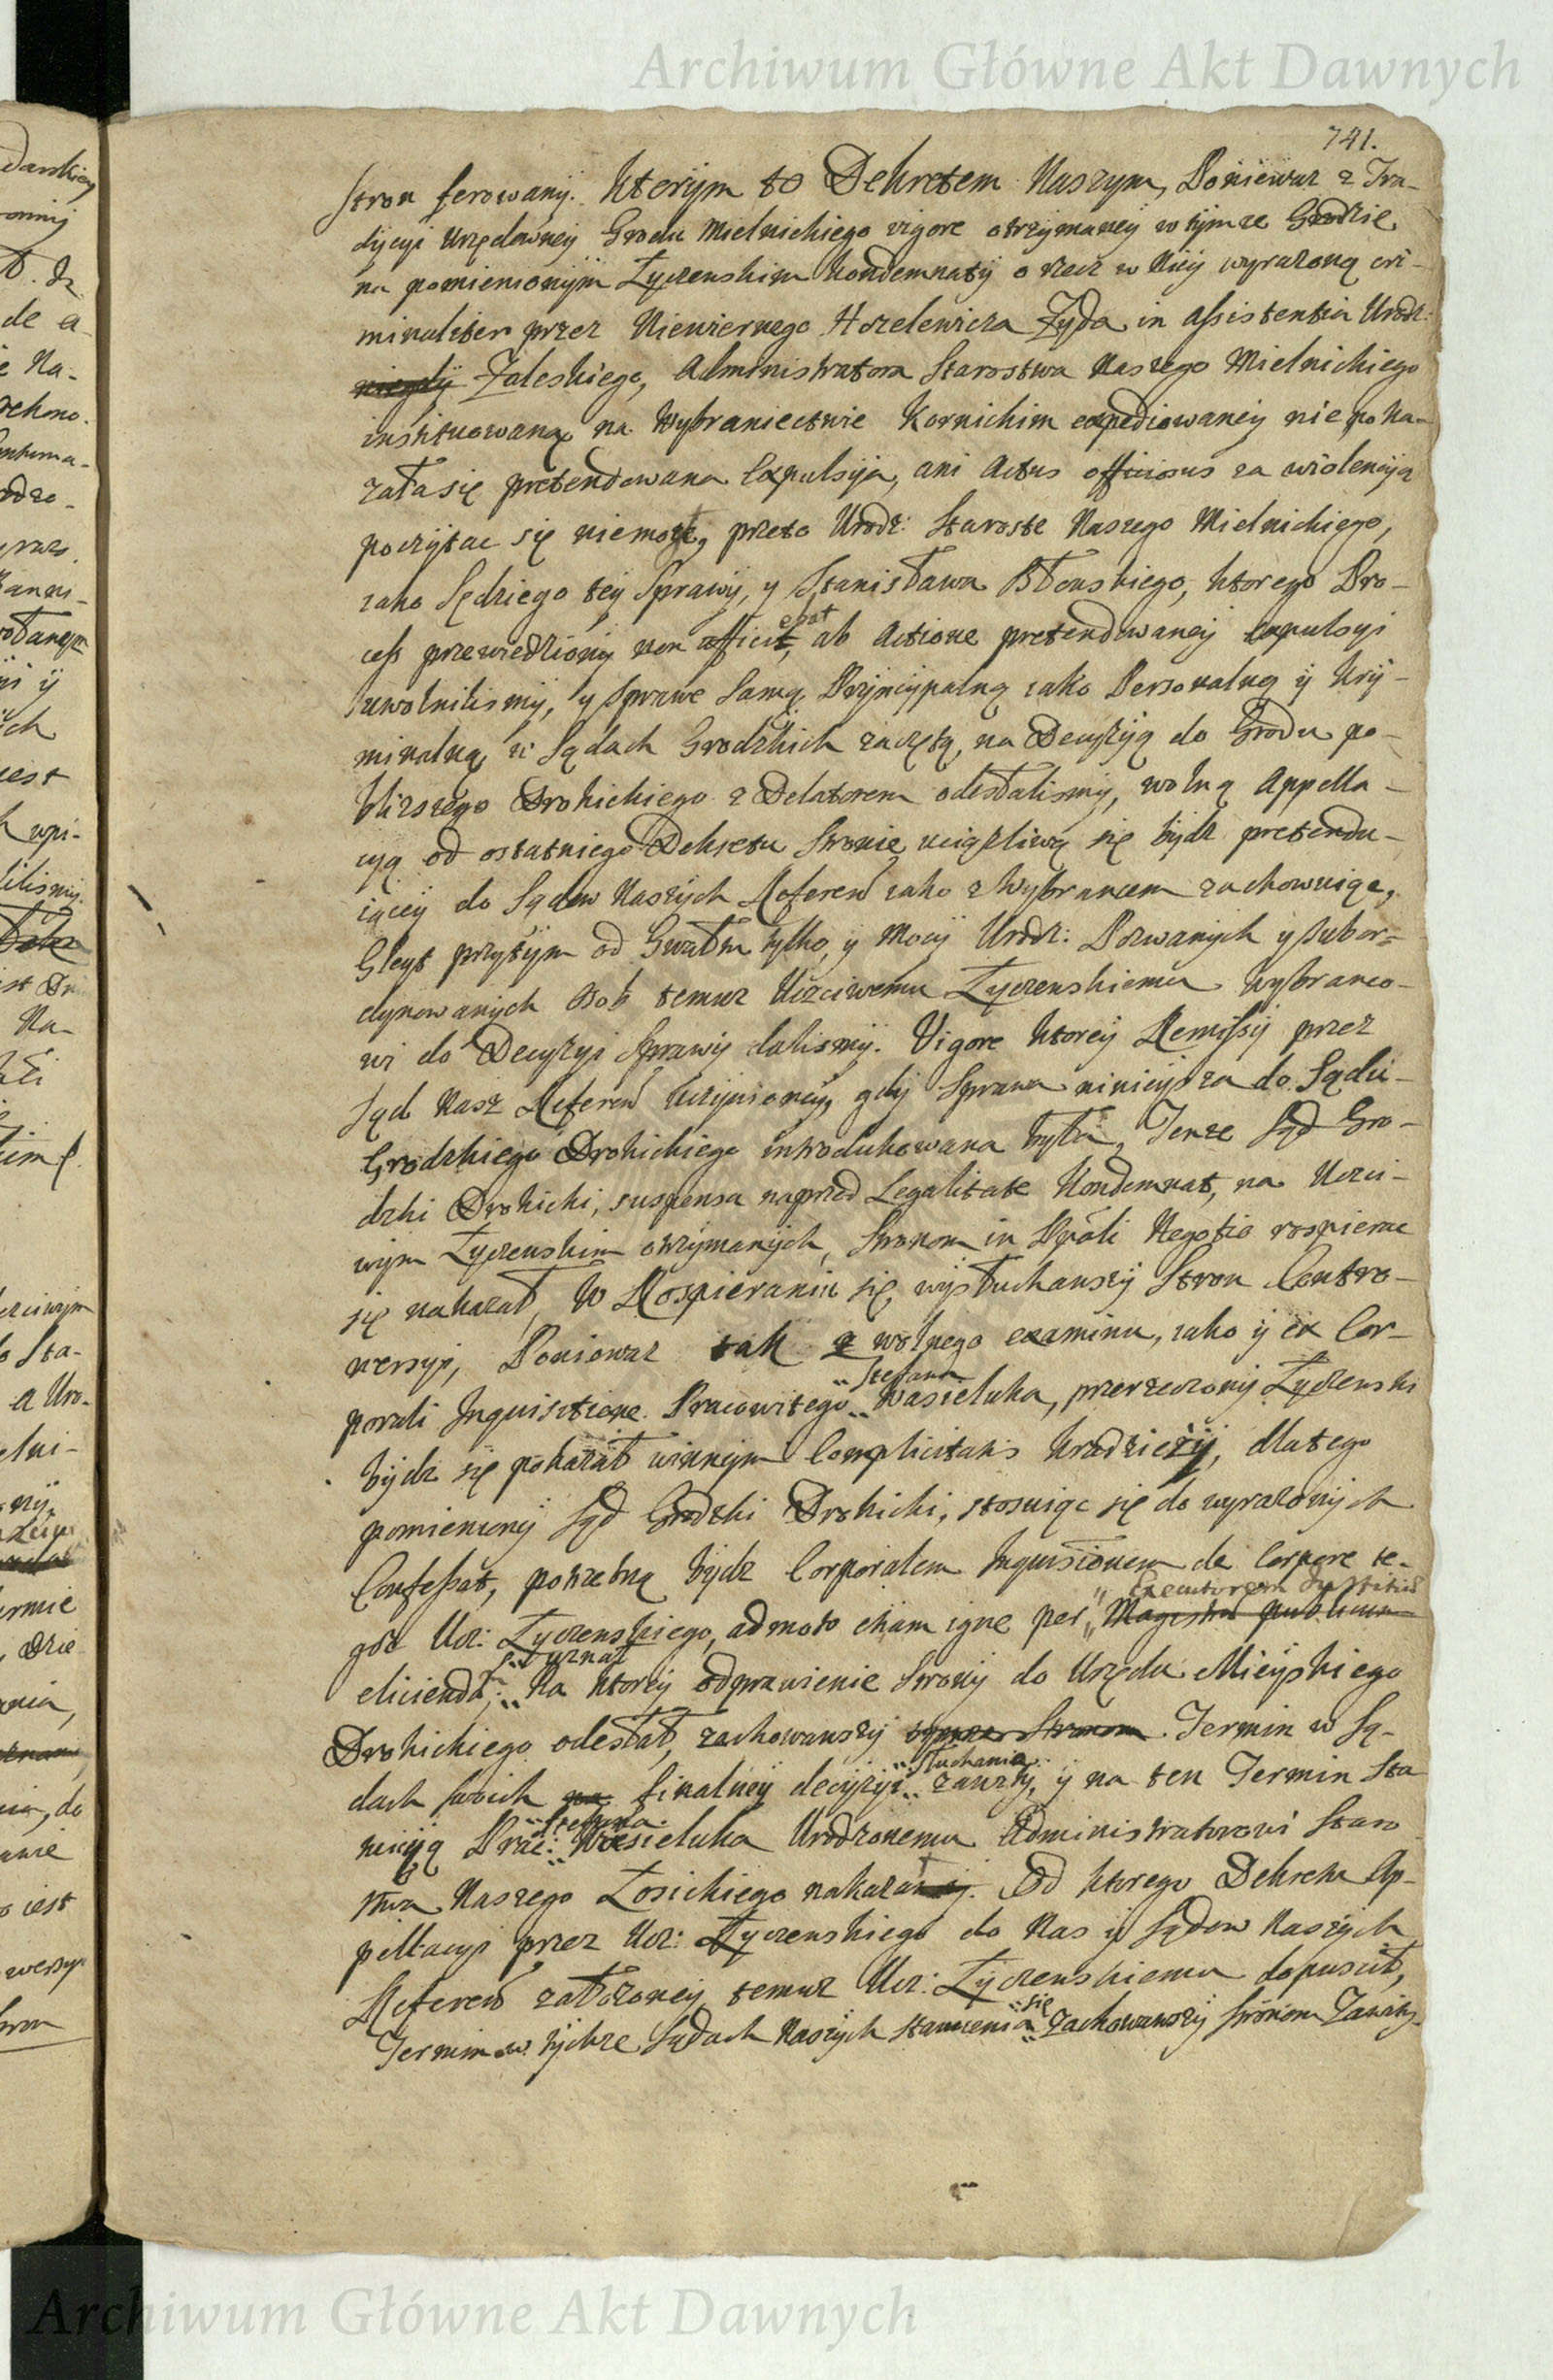 Archiwum Główne Akt Dawnych
741.
Stron ferowany. Ktorym to Dekretem Naszym, Poniewaz z Tra-
dycyi Urzędowney Grodu Mielnickiego vigore otrzymaney w tymze Grodzie
na pomienionym Łyczenskim Kondemnaty o rzecz w Niey wyrazoną cri-
minaliter przez Niewiernego Hoszelewicza Zyda in assistentia Urodz:
niegdy Zaleskiego, Administratora Starostwa Naszego Mielnickiego
instituowaną na Wybraniectwie Kornickim expediowaney nie poka-
zała się pretendowana Expulsya, ani Actus officiosus za wiolencyą
poczytac się niemoze, przeto Urodz: Staroste Naszego Mielnickiego,
iako Sędziego tey Sprawy, y Stanisława Błonskiego, ktorego Pro-
cess przewiedziony non officit, ab Actione pretendowaney expulsyi
uwolnilismy, y Sprawe Samą Pryncypalną iako Personalną y Kry-
minalną w Sądach Grodzkich zaczętą, na Decyzyą do Grodu po-
blizszego Drohickiego z Delatorem odesłalismy, wolną Appella-
cyą od ostatniego Dekretu Stronie uciązliwą się bydz pretendu-
iącey do Sądow Naszych Referen iako z Wybrancem zachowuiąc,
Gleyt przytym od Gwałtu tylko, y Mocy Urodz: Pozwanych y subor-
dynowanych Osob temuz Uczciwemu Łyczenskiemu Wybranco-
wi do Decyzyi Sprawy dalismy. Vigore ktorey Remissy przez
Sąd Nasz Referen uczynioney, gdy Sprawa ninieysza do Sądu
Grodzkiego Drohickiego introdukowana była, Tenze Sąd Gro-
dzki Drohicki, suspensa naprzod Legalitate Kondemnat, na Uczci-
wym Łyczenskim otrzymanych, Stronom in Ppali Negotio rospierac
się nakazał, W Rospieraniu się wysłuchawszy Stron Contro-
wersyi, Poniewaz tak z wolnego examinu, iako y ex Cor-
Stefana
porali Inquisitione Pracowitego Wasieluka, przerzeczony Łyczenski
bydz się pokazał winnym Complicitatis kradziezy, dlatego
pomieniony Sąd Grodzki Drohicki, stosuiąc się do wyrazonych
Confessat, potrzebną bydz Corporalem Inquisitionem de Corpore te-
Executorem Justitiae
goz Ucz: Łyczenskiego, admoto etiam igne per Magistrum publicum
uznał
eliciendam, Na ktorey odprawienie Strony do Urzędu Mieyskiego
Drohickiego odesłał, zachowawszy Stronom Termin w Są-
słuchania
dach swoich na finalney decyzyi zawity, y na ten Termin Sta
Stefana
wicyą Prac: Wasieluka Urodzonemu Administratorowi Staro
stwa Naszego Łosickiego nakazał. Od ktorego Dekretu Ap-
pellacyi przez Ucz: Łyczenskiego do Nas y Sądow Naszych
Referen załozoney temuz Ucz: Łyczenskiemu dopuscił,
się
Termin w tychze Sądach Naszych stawienia zachowawszy Stronom Zawity.
Archiwum Główne Akt Dawnych